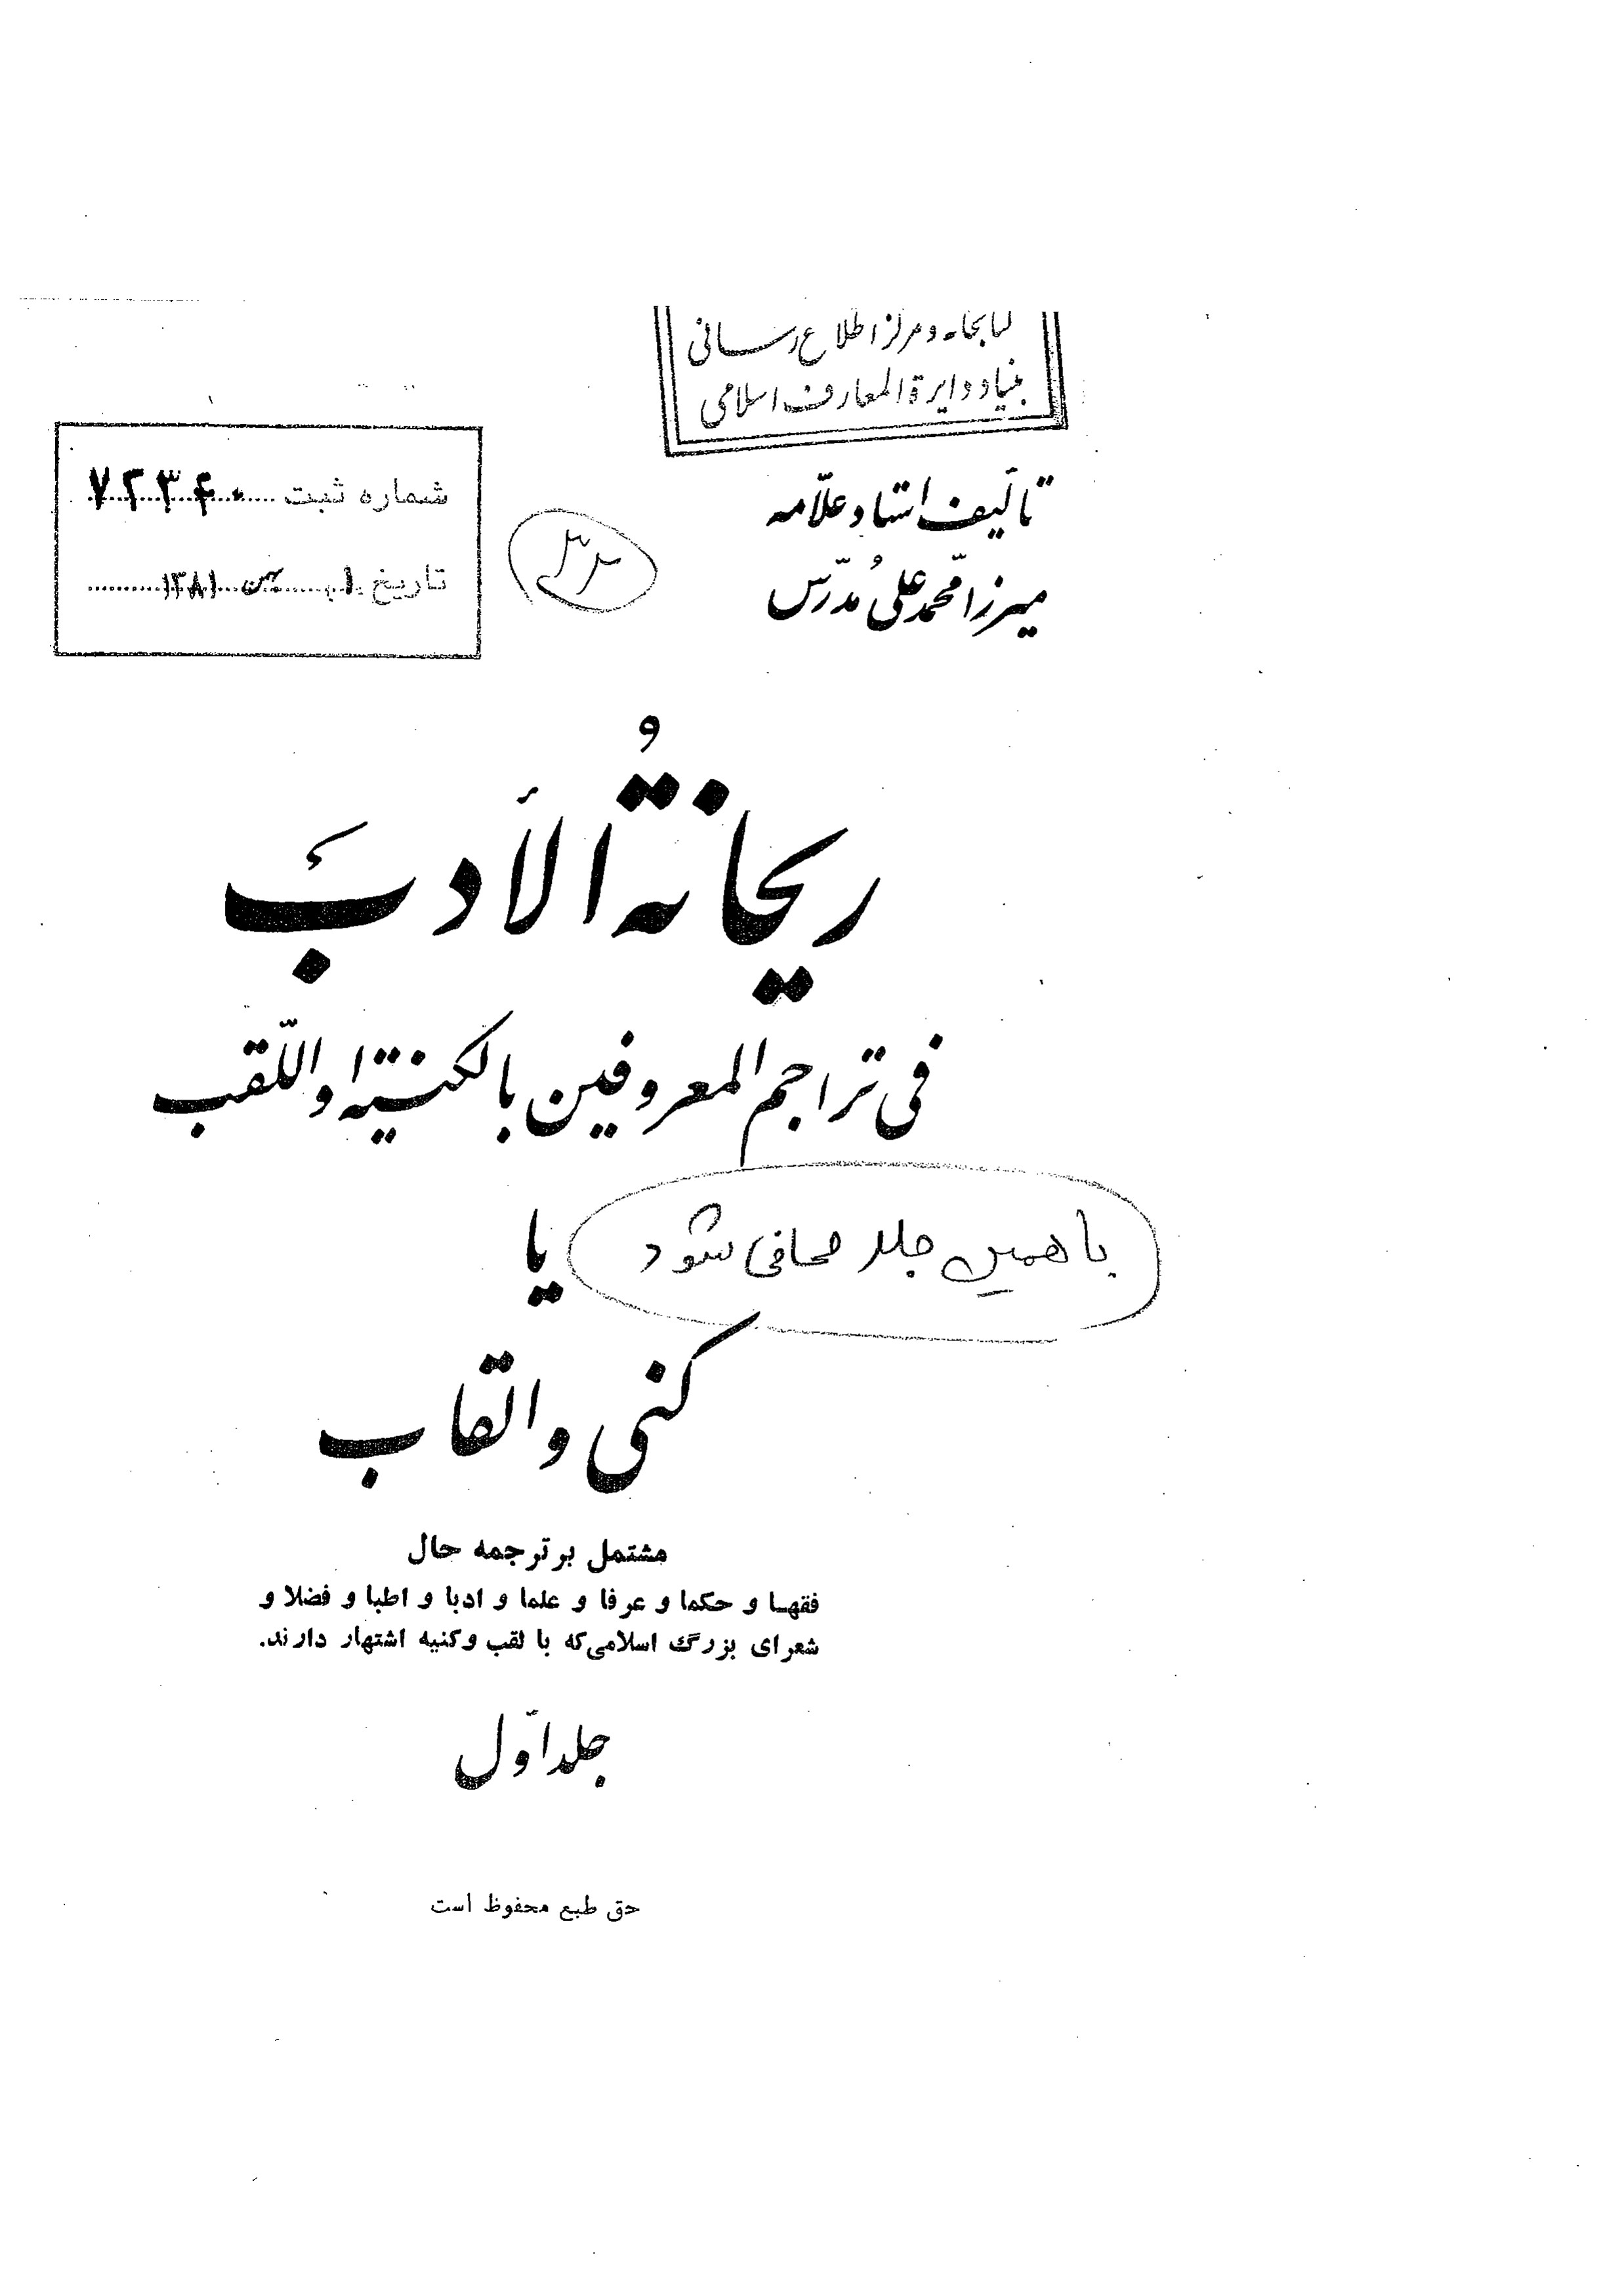 کتابخانه و مرکز اطلاع رسانی
بنیاد دایرة المعارف اسلامی
شماره ثبت ۷۲۳۴۰
تاریخ ۱ بهمن ۱۳۸۱
تألیف استاد علّامه
میرزا محمّد علی مُدرّس
ریحانةُ الأدبْ
فی تراجم المعروفین بالکنیة او اللّقب
با همین جلد صحافی شود
یا
کنی و القاب
مشتمل بر ترجمه حال
فقهـا و حکما و عرفا و علما و ادبا و اطبا و فضلا و
شعرای بزرگ اسلامی‌که با لقب وکنیه اشتهار دارند.
جلد اوّل
حق طبع محفوظ است